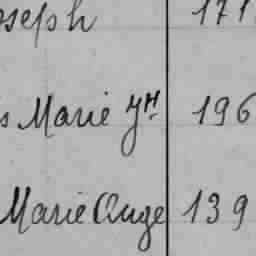 oseph 171
s Marie yH 196
Marie Ange 139